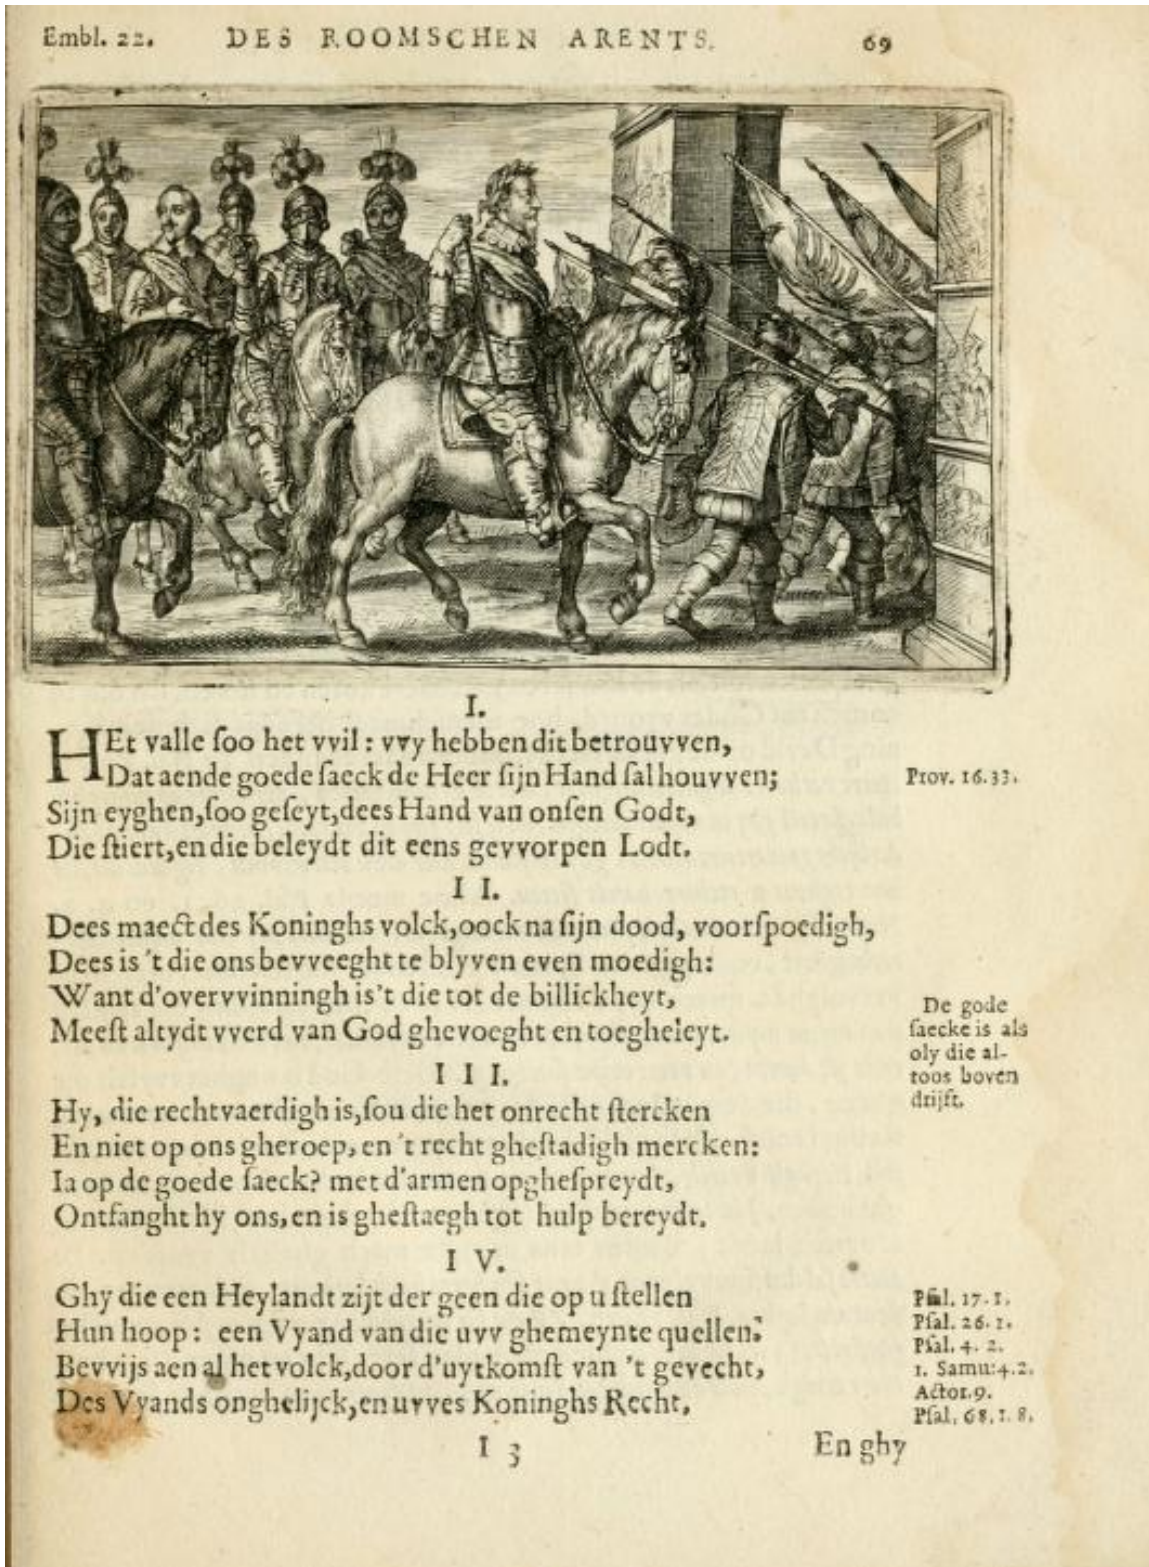 Embl. 22. DES ROOMSCHEN ARENTS. 69
I.
HEt valle ſoo het vvil: vvy hebben dit betrouvven,
Dat aende goede ſaeck de Heer ſijn Hand ſal houvven; Prov. 16.33.
Sijn eyghen, ſoo geſeyt, dees Hand van onſen Godt,
Die ſtiert, en die beleydt dit eens gevvorpen Lodt.
II.
Dees maect des Koninghs volck, oock na ſijn dood, voorſpoedigh,
Dees is 't die ons bevveeght te blyven even moedigh:
Want d'overvvinningh is't die tot de billickheyt,
Meeſt altydt vverd van God ghevoeght en toegheleyt.
De gode
ſaecke is als
oly die al-
toos boven
drijft.
III.
Hy, die rechtvaerdigh is, ſou die het onrecht ſtercken
En niet op ons gheroep, en 't recht gheſtadigh mercken:
Ia op de goede ſaeck? met d'armen opgheſpreydt,
Ontfanght hy ons, en is gheſtaegh tot hulp bereydt.
IV.
Ghy die een Heylandt zijt der geen die op u ſtellen
Hun hoop: een Vyand van die uvv ghemeynte quellen:
Bevvijs aen al het volck, door d'uytkomſt van 't gevecht,
Des Vyands onghelijck, en uvves Koninghs Recht.
Pſal. 17.1.
Pſal. 26.1.
Pſal. 4. 2.
1. Samu:4.2.
Actor.9.
Pſal. 68.1.8.
I 3 En ghy